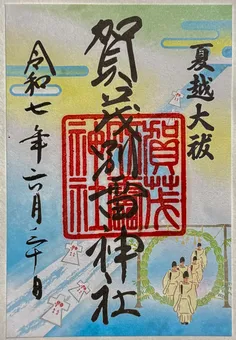 夏越大祓
賀茂別雷神社
賀茂
神社
令和七年六月三十日